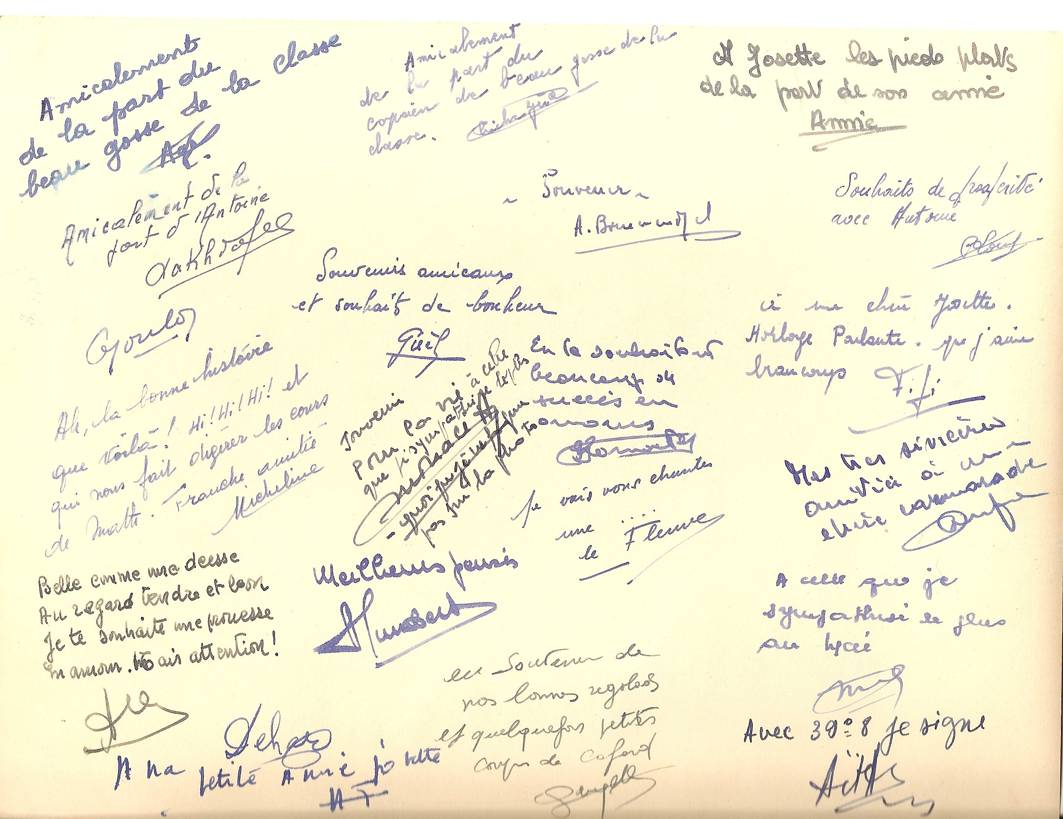 Amicalement
de la part du
beau gosse de la classe
Amicalement
de la part du
copain de beau gosse de la
classe.
A Josette les pieds plats
de la part de son amie
Annie
Amicalement de la
part d'Antoine
~ Souvenir ~
Souhaits de prospérité
avec Antoine
Souvenirs amicaux
et souhaits de bonheur
à ma chère Josette.
Horloge Parlante. que j'aime
beaucoup
Fifi
Goulo
Ah, la bonne histoire
que voilà! Hi! Hi! Hi! et
qui nous fait digérer les cours
de Math. Franche amitié
Micheline
Souvenir
Pour ta vie à celle
que je sympathise le plus
pas sur la photo
En te souhaitant
beaucoup de
succès en
amour
Je vais vous chanter
une ....
le Fleuve
Mes très sincères
amitiés à une
chère camarade
Belle comme une déesse
Au regard tendre et bon
Je te souhaite une prouesse
En amour. Mais attention!
Meilleures pensées
Humbert
A celle que je
sympathise le plus
au lycée
en souvenir de
nos bonnes rigolades
et quelquefois petits
coups de cafard
Avec 39°8 je signe
A ma petite Amie Josette